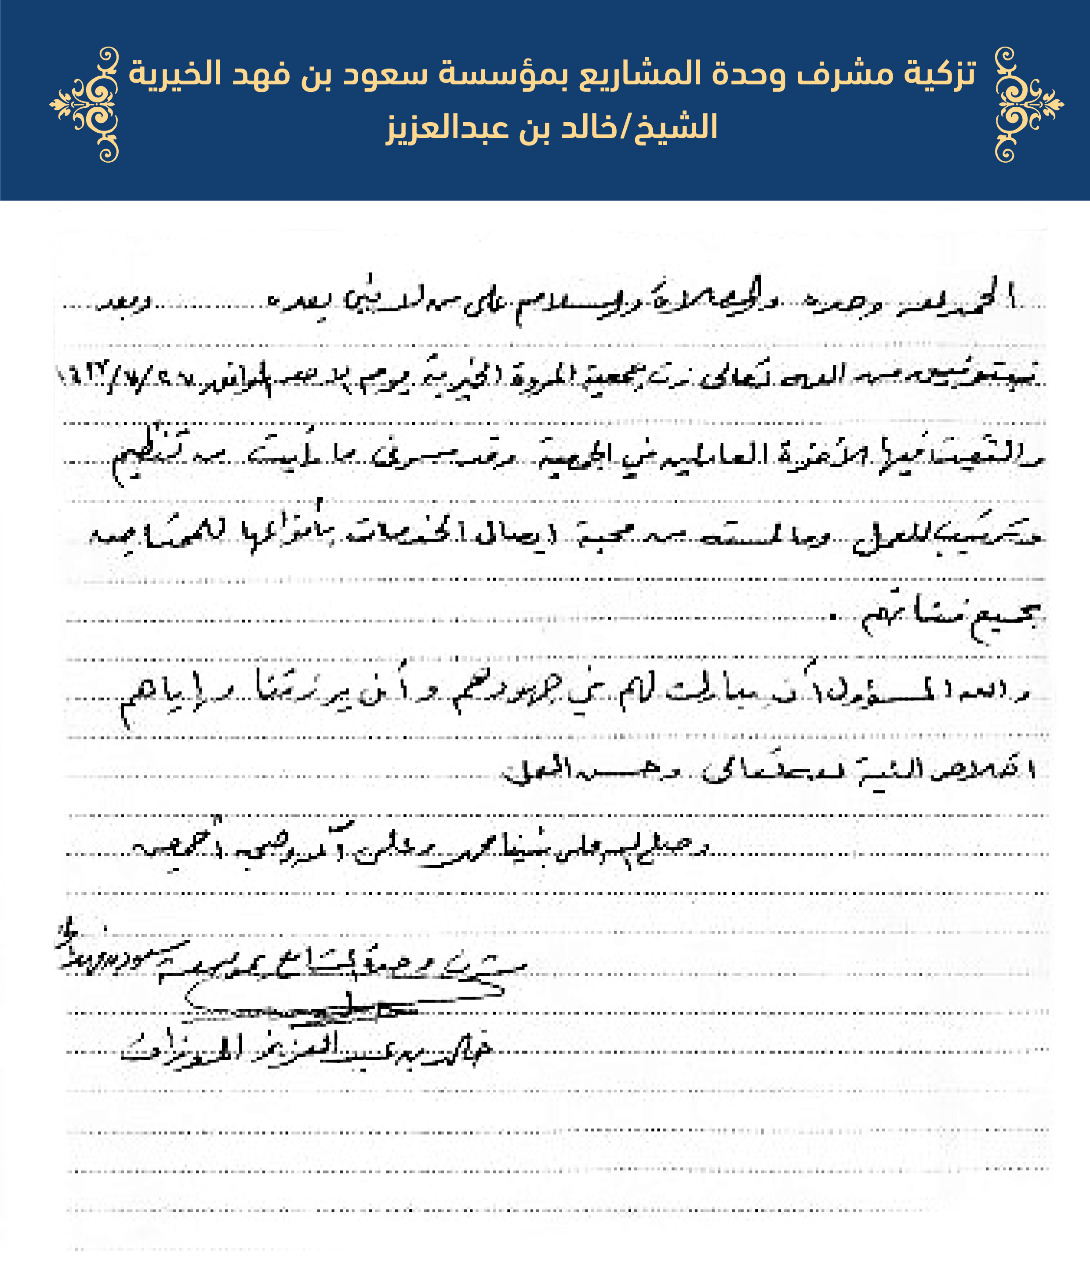 تزكية مشرف وحدة المشاريع بمؤسسة سعود بن فهد الخيرية
الشيخ/خالد بن عبدالعزيز
الحمد لله وحده والصلاة والسلام على من لا نبي بعده وبعد
فبتوفيق من الله تعالى زرت جمعية المروة الخيرية يوم الأحد الموافق
والتقيت فيها الأخوة العاملين في الجمعية وقد سرني ما رأيت من تنظيم
وترتيب للعمل وما لمسته من محبة ايصال الخدمات بأنواعها للمحتاجين
بجميع فئاتهم .
والله المسؤول أن يبارك لهم في جهودهم وأن يرزقنا وإياهم
اخلاص النية لله تعالى وحسن العمل
وصلى الله على نبينا محمد وعلى آله وصحبه أجمعين
مشرف وحدة المشاريع بمؤسسة سعود بن فهد
خالد بن عبدالعزيز